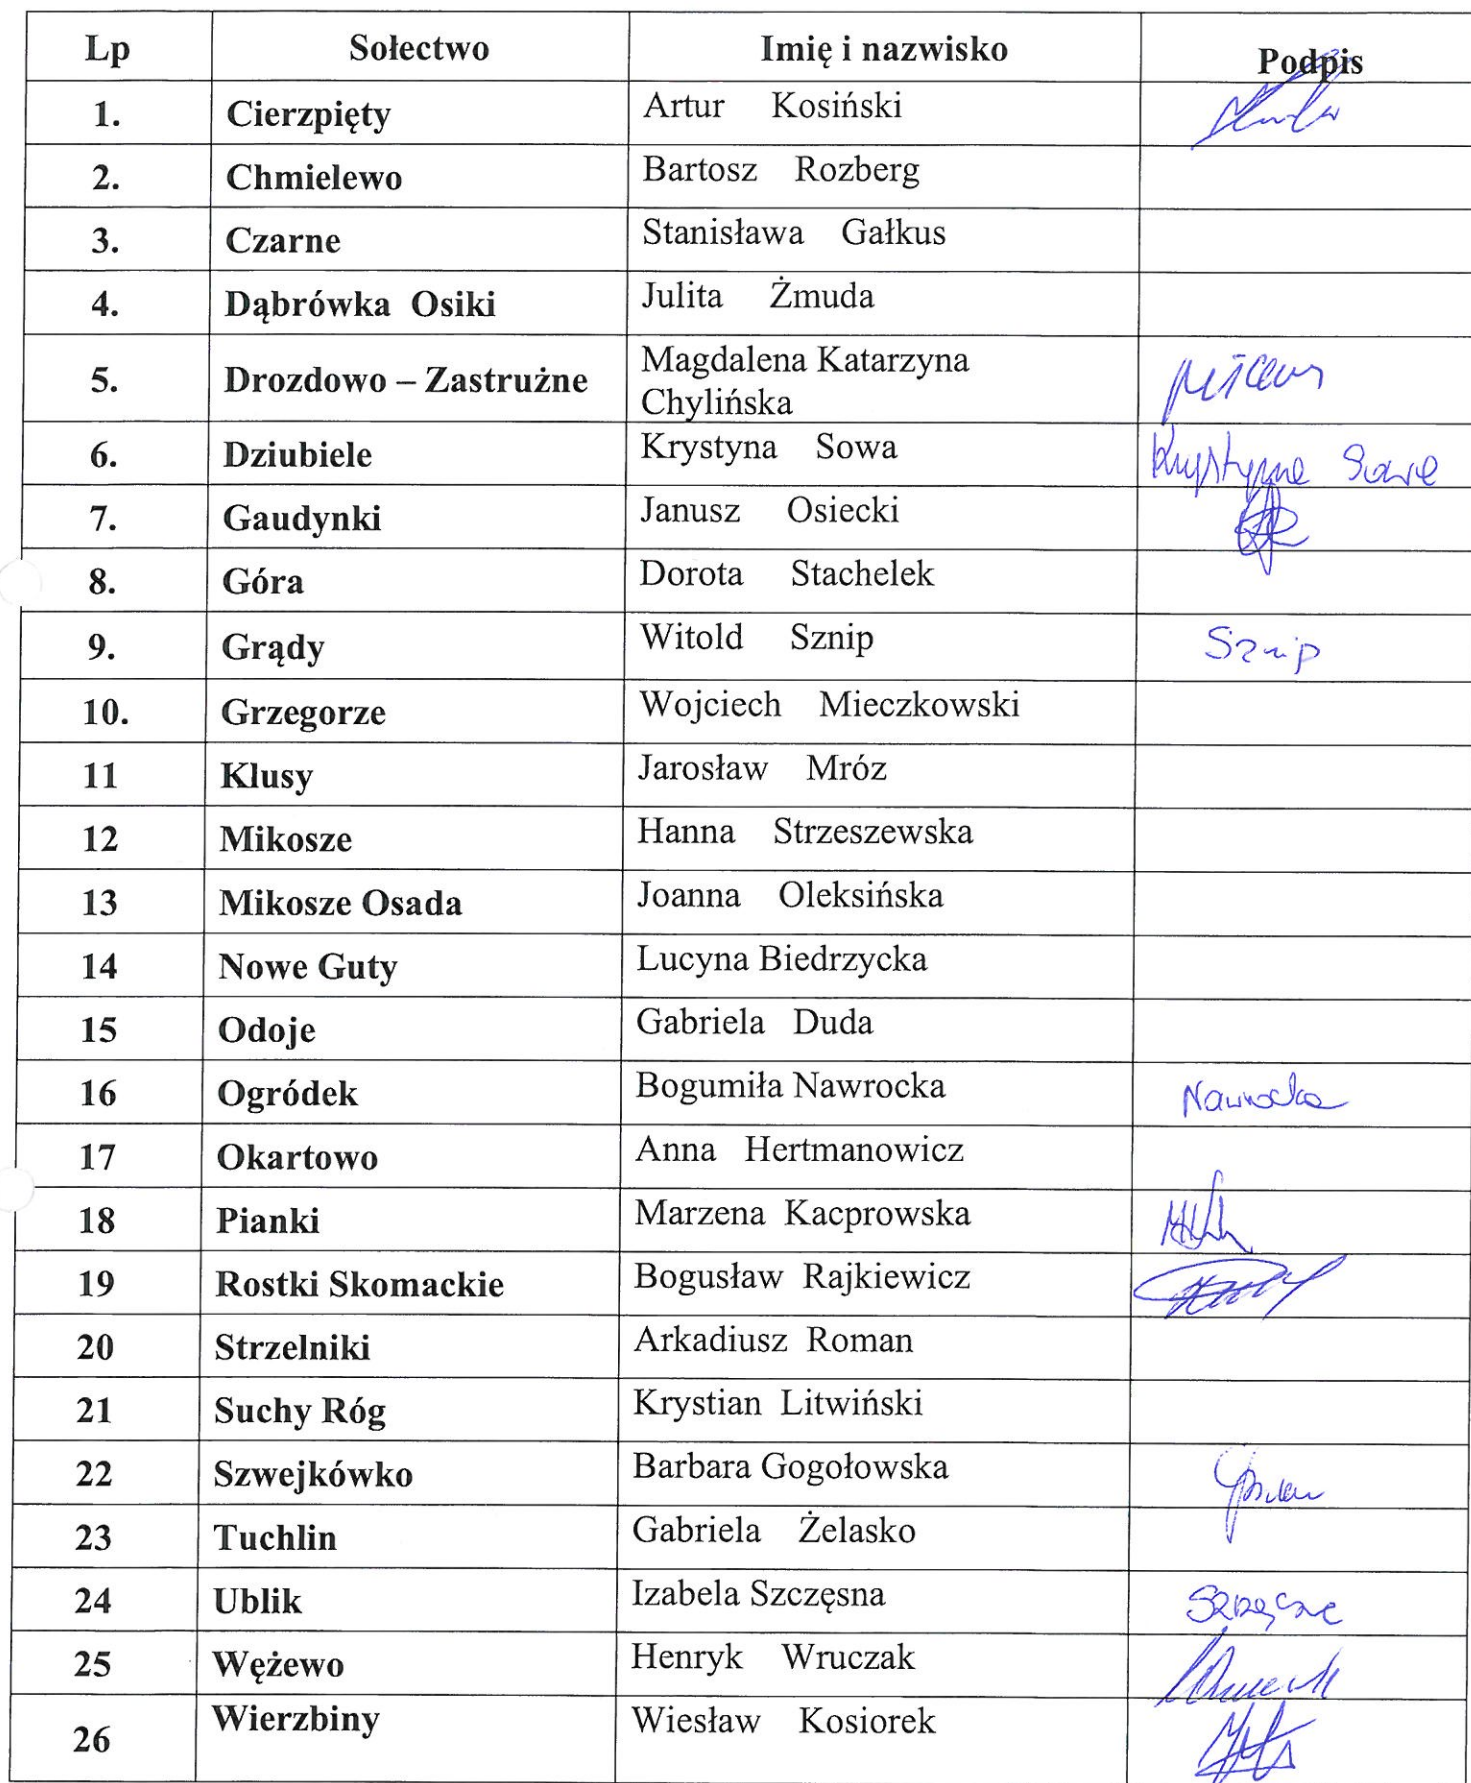 Lp Sołectwo Imię i nazwisko Podpis
1. Cierzpięty Artur Kosiński
2. Chmielewo Bartosz Rozberg
3. Czarne Stanisława Gałkus
4. Dąbrówka Osiki Julita Żmuda
5. Drozdowo – Zastrużne Magdalena Katarzyna
Chylińska
6. Dziubiele Krystyna Sowa Krystyna Sowa
7. Gaudynki Janusz Osiecki
8. Góra Dorota Stachelek
9. Grądy Witold Sznip Sznip
10. Grzegorze Wojciech Mieczkowski
11 Klusy Jarosław Mróz
12 Mikosze Hanna Strzeszewska
13 Mikosze Osada Joanna Oleksińska
14 Nowe Guty Lucyna Biedrzycka
15 Odoje Gabriela Duda
16 Ogródek Bogumiła Nawrocka Nawrocka
17 Okartowo Anna Hertmanowicz
18 Pianki Marzena Kacprowska
19 Rostki Skomackie Bogusław Rajkiewicz
20 Strzelniki Arkadiusz Roman
21 Suchy Róg Krystian Litwiński
22 Szwejkówko Barbara Gogołowska
23 Tuchlin Gabriela Żelasko
24 Ublik Izabela Szczęsna Szczęsna
25 Wężewo Henryk Wruczak
26 Wierzbiny Wiesław Kosiorek